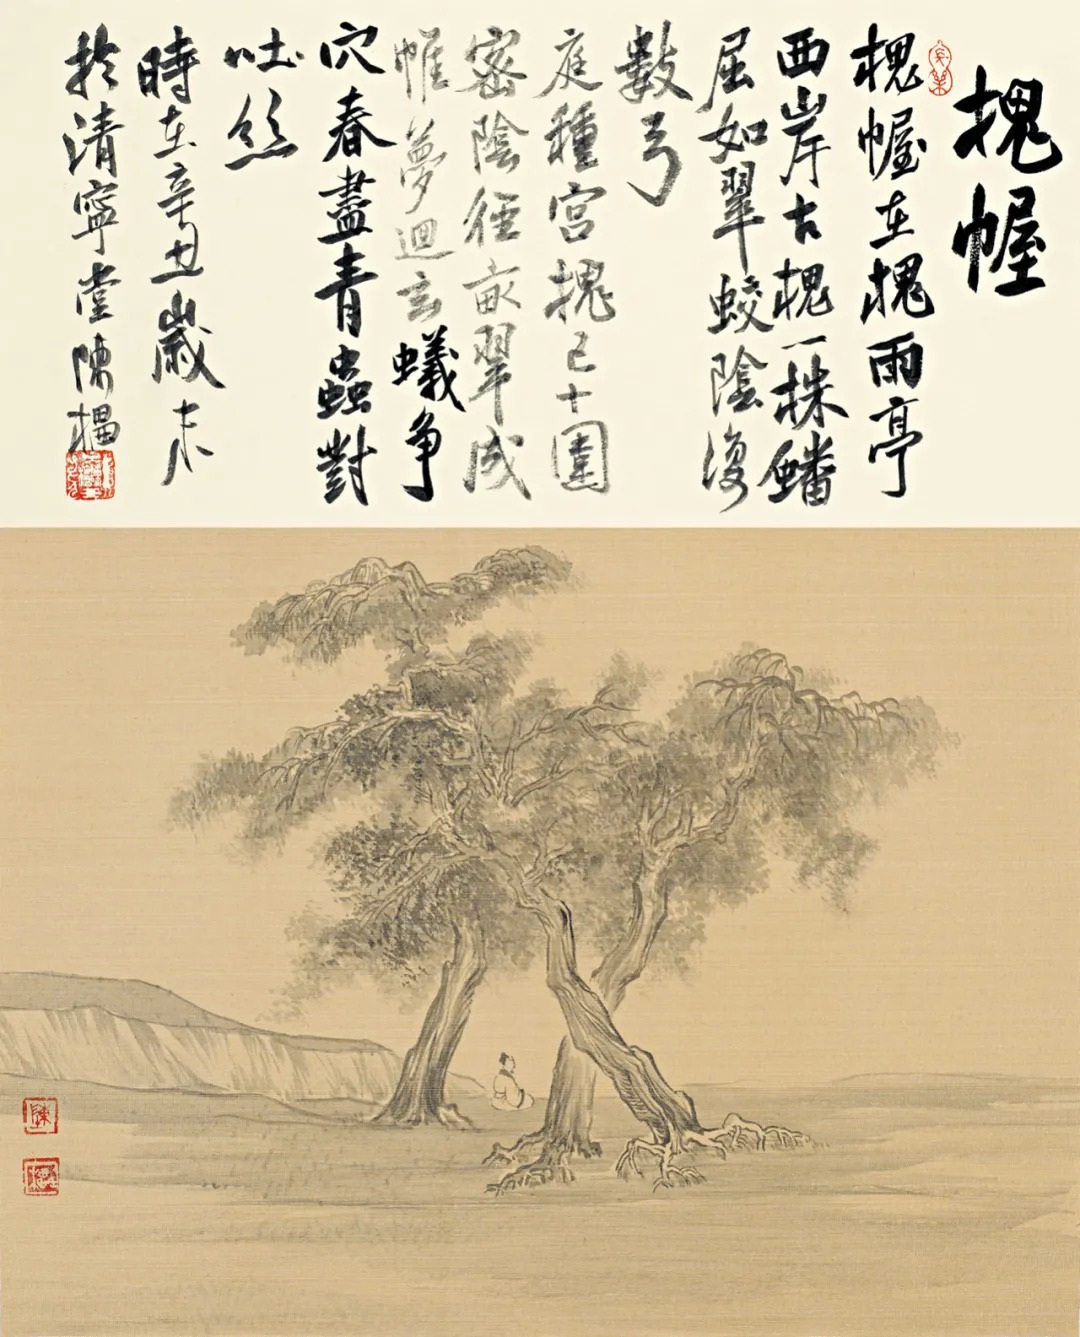 槐幄
槐幄在槐雨亭
西岸古槐一株蟠
屈如翠蛟陰復
數弓
庭種宮槐已十圍
密陰徑畝翠成
帷夢迴玄蟻爭
穴春盡青蟲對
吐絲
時在辛丑歲末
於清寧堂陳
陳